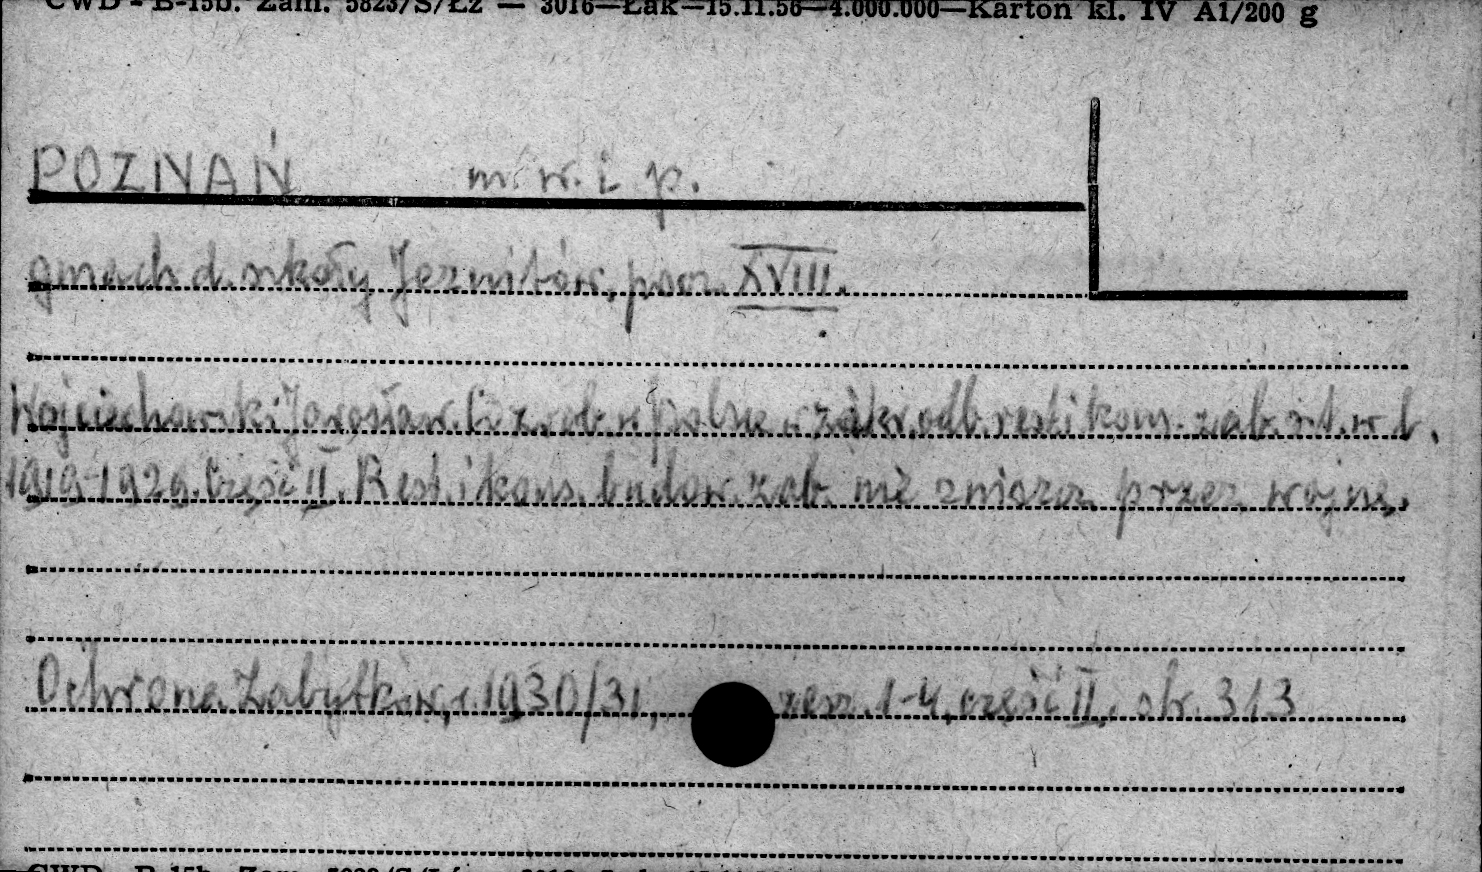 CWD - B-15b. Zam. 5823/S/Łż — 3016—Łak—15.11.56—4.000.000—Karton kl. IV A1/200 g
POZNAŃ m. w. i p.
gmach d. szkoły Jezuitów, pocz. XVIII.
Wojciechowski Jarosław. Co zrob. w Polsce w zakr. odb. rest. i kons. zab. szt. w l.
1919-1929. Część II. Rest. i kons. budow. zab. nie zniszcz. przez wojnę.
Ochrona Zabytków, r. 1930/31, zesz. 1-4, część II, str. 313